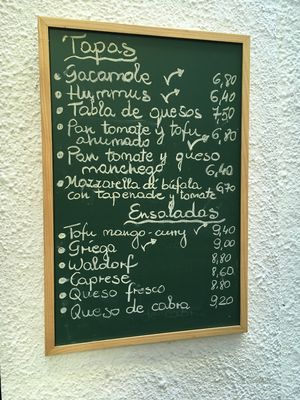 Tapas
Gacamole 6,80
Hummus 6,40
Tabla de quesos 7,50
Pan tomate y tofu
ahumado 6,80
Pan tomate y queso
manchego 6,40
Mozzarella di búfala 9,70
con tapenade y tomate
Ensaladas
Tofu mango-curry 9,40
Griega 9,00
Waldorf 8,80
Caprese 8,60
Queso fresco 8,80
Queso de cabra 9,20